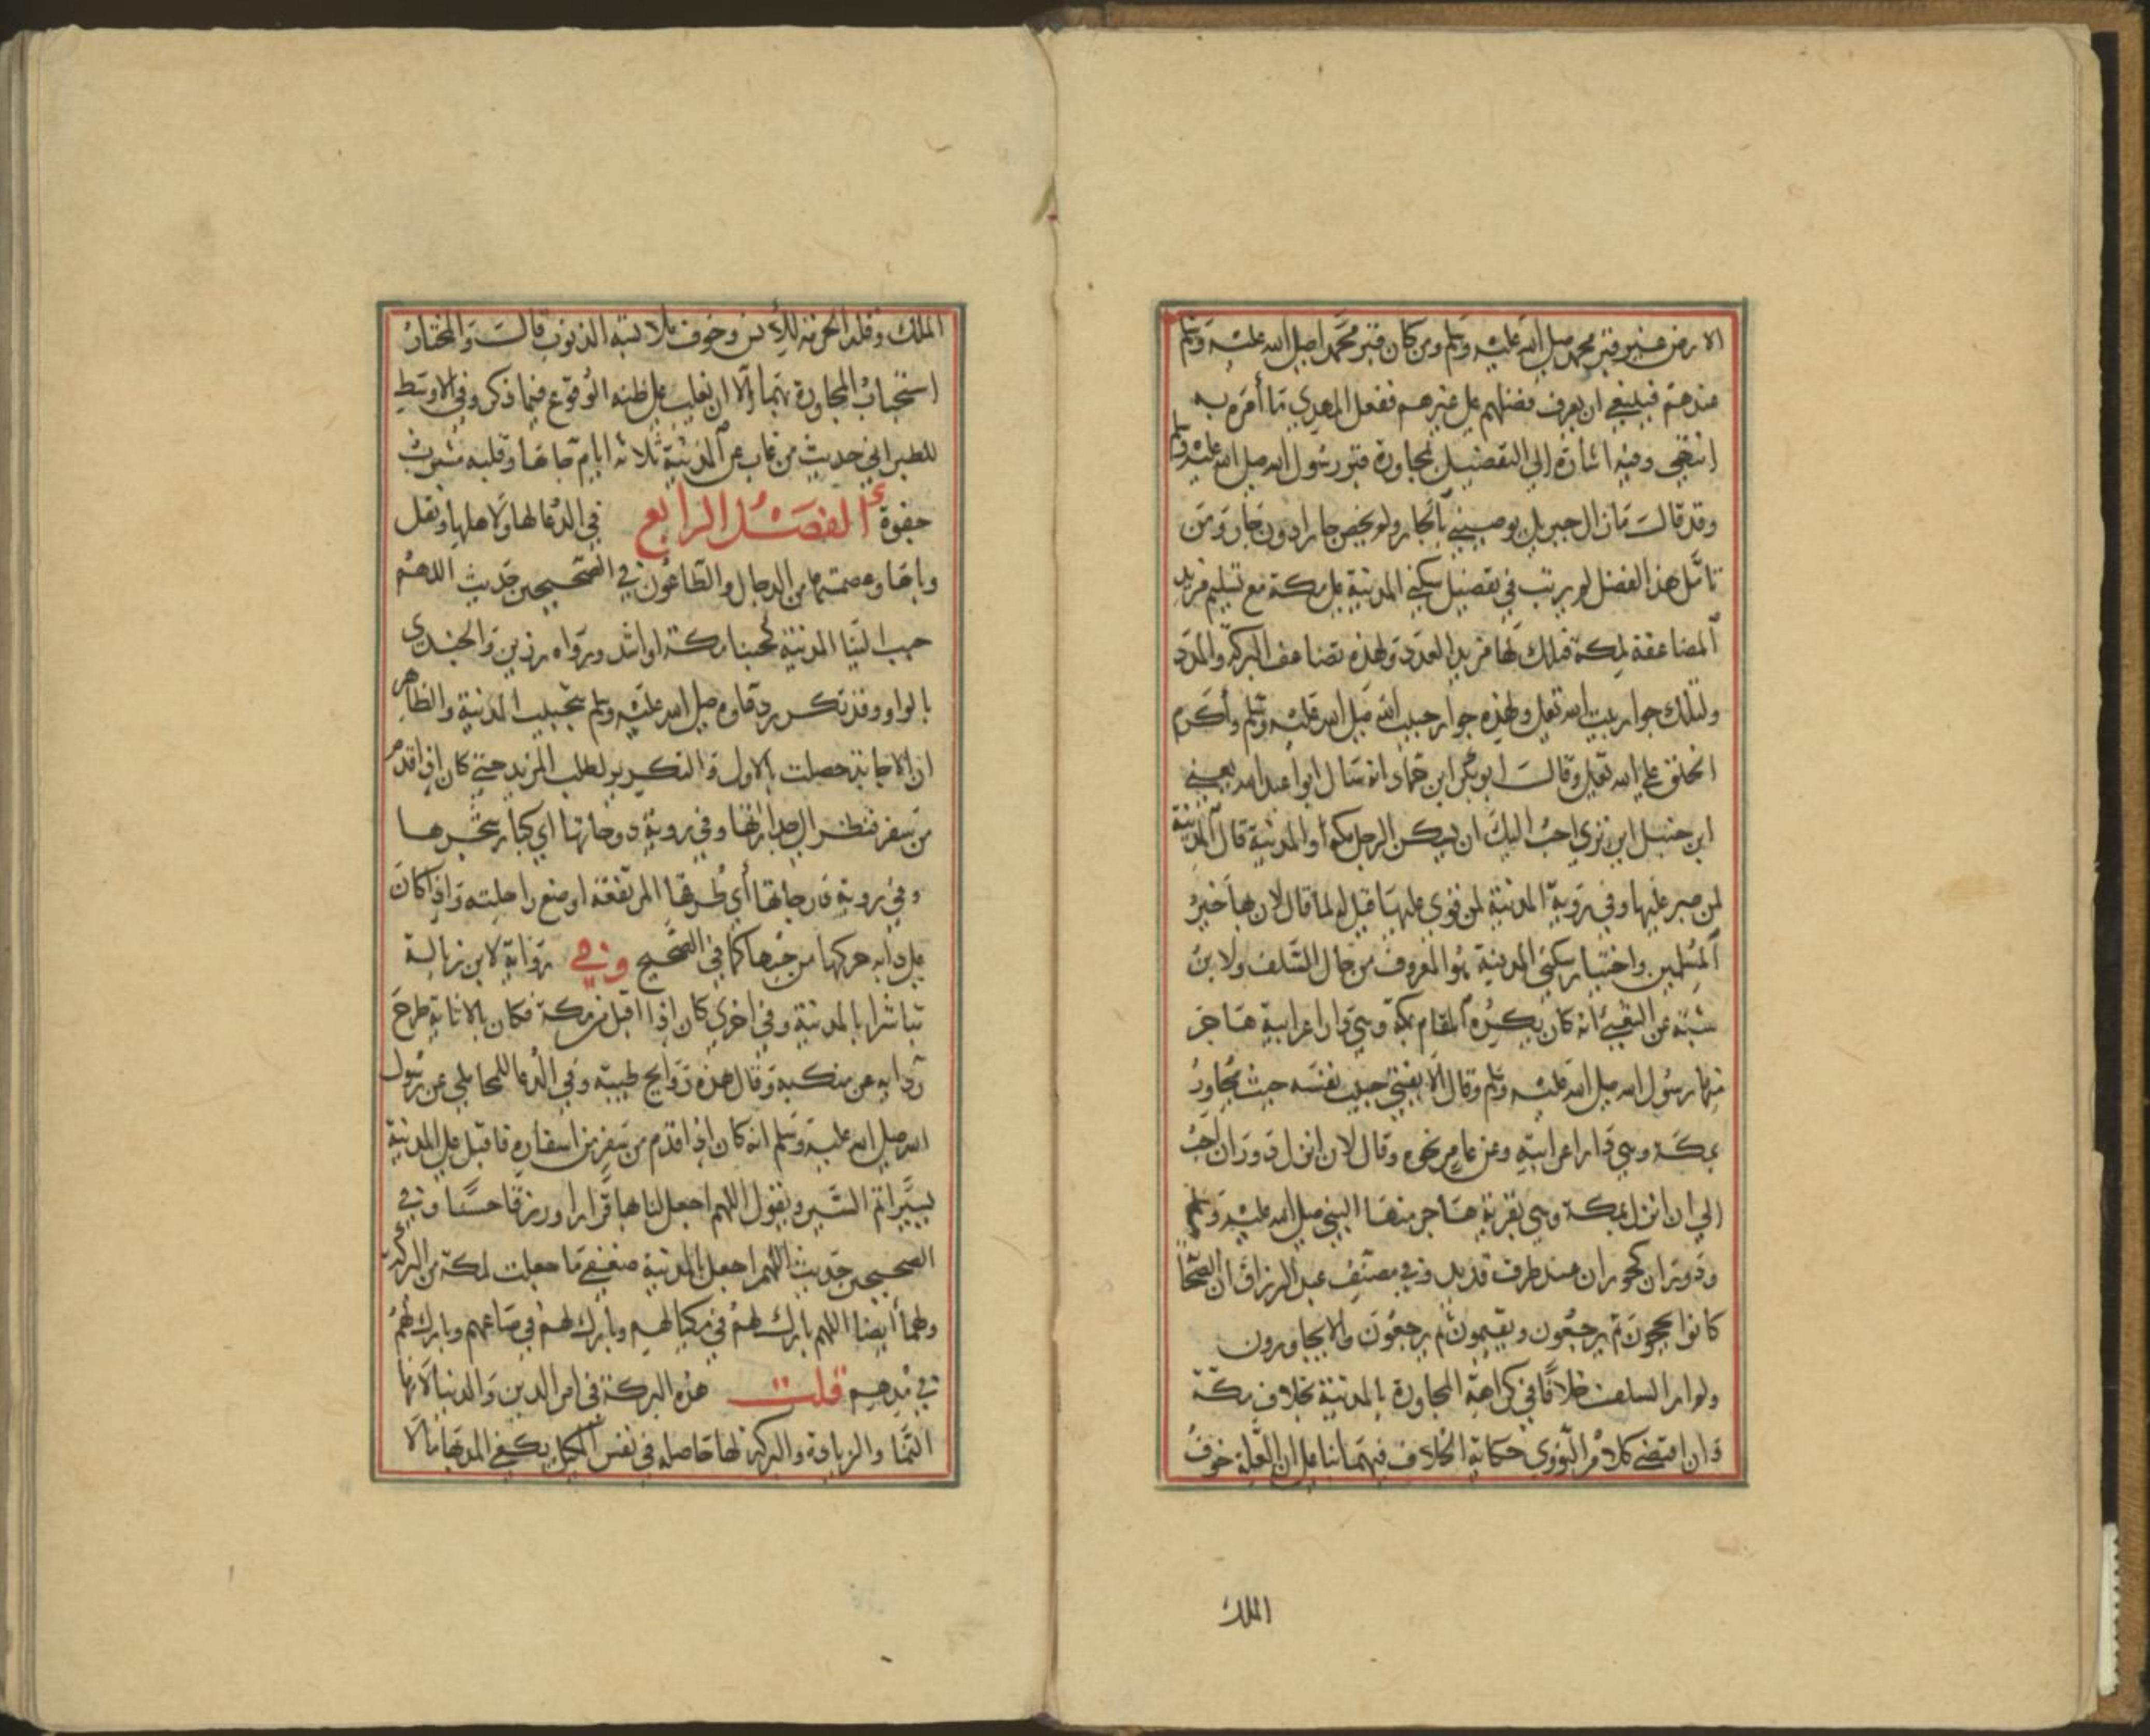 الارض غير قبر محمد صلى الله عليه وسلم ومن كان قبر محمد صلى الله عليه وسلم
عندهم فينبغي ان يعرف فضلهم على غيرهم ففعل المهدي ما أمره به
انتهى وفيه اشارة الى التفضيل بمجاورة قبر رسول الله صلى الله عليه وسلم
وقد قالت مازال جبريل يوصيني بالجار ولم يخص جارا دون جار ومن
تأمل هذا الفضل لم يرتب في تفضيل سكنى المدينة على مكة مع تسليم مزيد
المضاعفة لمكة فتلك لها مزيد العدد ولهذه تضاعف البركة والمدد
ولتلك جوار بيت الله تعالى ولهذه جوار حبيب الله صلى الله عليه وسلم وأكرم
الخلق على الله تعالى وقالت ابو بكر ابن حماد انه سال ابوا عبد الله يعني
ابن حنبل اين ترى احب اليك ان يسكن الرجل مكة او المدينة قال المدينة
لمن صبر عليها وفي روية المدينة لمن قوي عليها قيل له لما قال لان بها خير
المسلمين واختيار سكنى المدينة هو المعروف من حال السلف ولابن
شبه عن الشعبي انه كان يكره المقام بمكة وهي دار اعرابية هاجر
منها رسول الله صلى الله عليه وسلم وقال الا يغني حبيب نفسه حيث يجاور
بمكة وهي دار اعرابية وعن عامر نحوه وقال لان انزل دوران احب
الي ان انزل بمكة وهي قرية هاجر منها النبي صلى الله عليه وسلم
ودوران كحوران عند طرف قديد وفي مصنف عبد الرزاق ان الصحا
كانوا يحجون ثم يرجعون ويقيمون ثم يرجعون ولا يجاورون
ولم ار السلف خلافا في كراهة المجاورة بالمدينة بخلاف مكة
وان اقتضى كلام النووي حكاية الخلاف فيهما بنا على ان العلة خوف
الملك
الملك وقلة الحرمة للأنس وخوف ملابسة الذنوب قالت والمختار
استحباب المجاورة بهما الا ان يغلب على ظنه الوقوع فيما ذكر وفي الاوسط
للطبراني حديث من غاب عن المدينة ثلاثة ايام جاها وقلبه مشرب
جفوة الفصل الرابع في الدعا لها ولاهلها ونقل
وباها وعصمتها من الدجال والطاعون في الصحيحين حديث اللهم
حبب الينا المدينة كحبنا مكة او اشد ورواه رزين والجندي
بالواو وقد تكرر دعاوه صلى الله عليه وسلم بتحبيب المدينة والظاهر
ان الاجابة حصلت بالاول والتكرير لطلب المزيد حتى كان اذا قدم
من سفر فنظر الى جدارتها وفي روية دوحاتها اي كبار شجرها
وفي روية درجاتها أي طرقها المرتفعة اوضع راحلته واذا كان
على دابه حركها من حبها كما في الصحيح وفي رواية لابن زبالة
تباشرا بالمدينة وفي اخرى كان اذا اقبل من مكة فكان بالاثاية طرح
ردايه عن منكبيه وقال هذه روايح طيبة وفي الدعا للمحاملي عن رسول
الله صلى الله عليه وسلم انه كان اذا قدم من سفر من اسفاره فاقبل على المدينة
يسير اتم السير ويقول اللهم اجعل لنا بها قرارا ورزقا حسنا وفي
الصحيحين حديث اللهم اجعل بالمدينة ضعفي ما جعلت لمكة من البركة
ولهما أيضا اللهم بارك لهم في مكيالهم وبارك لهم في صاعهم وبارك لهم
في مدهم قلت هذه البركة في امر الدين والدنيا لانها
النما والزيادة والبركة لها حاصله في نفس المكيل يكفي المد بها مالا